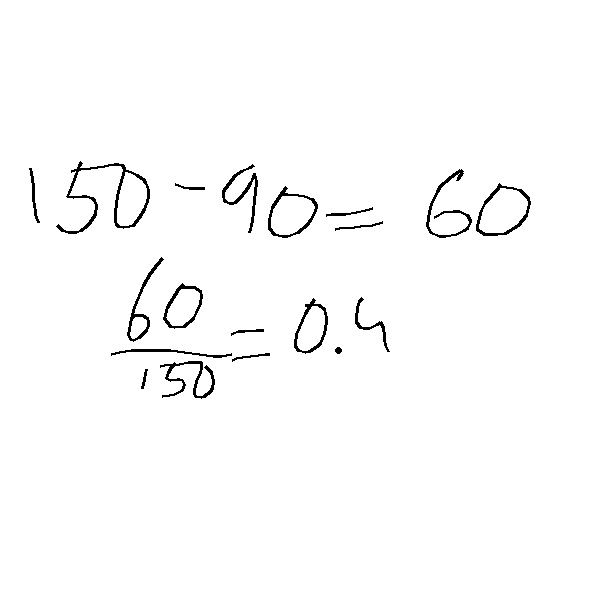 150 - 90 = 60
60/150 = 0.4